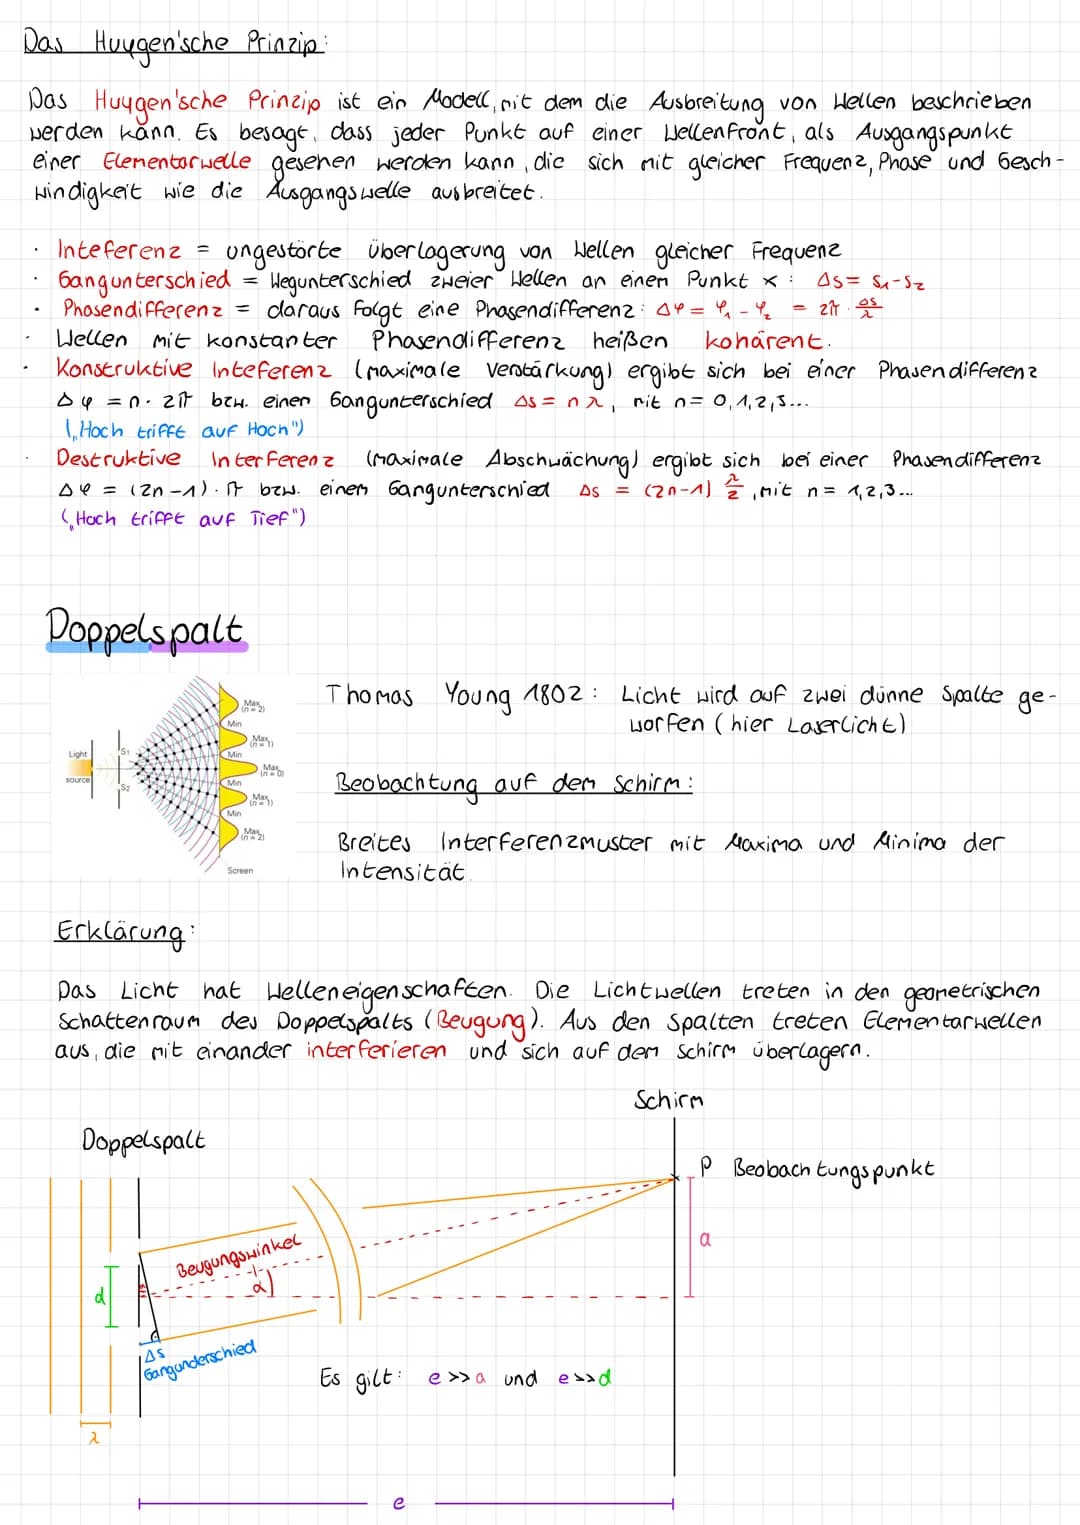 Das Huygen'sche Prinzip:
Das Huygen'sche Prinzip ist ein Modell, mit dem die Ausbreitung von Wellen beschrieben
werden kann. Es besagt, dass jeder Punkt auf einer Wellenfront, als Ausgangspunkt
einer Elementarwelle gesehen werden kann, die sich mit gleicher Frequenz, Phase und Gesch-
windigkeit wie die Ausgangswelle ausbreitet.
· Inteferenz = ungestörte Überlagerung von Wellen gleicher Frequenz
· Gangunterschied = Wegunterschied zweier Wellen an einem Punkt x : Δs = s₁-s₂
· Phasendifferenz = daraus folgt eine Phasendifferenz: Δφ = φ₁ - φ₂ = 2π · Δs/λ
· Wellen mit konstanter Phasendifferenz heißen kohärent.
· Konstruktive Inteferenz (maximale Verstärkung) ergibt sich bei einer Phasendifferenz
Δφ = n · 2π bzw. einen Gangunterschied Δs = n λ, mit n = 0,1,2,3...
(„Hoch trifft auf Hoch")
· Destruktive Interferenz (maximale Abschwächung) ergibt sich bei einer Phasendifferenz
Δφ = (2n-1) · π bzw. einem Gangunterschied Δs = (2n-1) λ/2, mit n = 1,2,3...
(„Hoch trifft auf Tief")
Doppelspalt
Thomas Young 1802: Licht wird auf zwei dünne Spalte ge-
worfen (hier Laserlicht)
Light
source
S1
S2
Max
(n = 2)
Min
Max
(n = 1)
Min
Max
(n = 0)
Min
Max
(n = 1)
Min
Max
(n = 2)
Screen
Beobachtung auf dem Schirm:
Breites Interferenzmuster mit Maxima und Minima der
Intensität.
Erklärung:
Das Licht hat Welleneigenschaften. Die Lichtwellen treten in den geometrischen
Schattenraum des Doppelspalts (Beugung). Aus den Spalten treten Elementarwellen
aus, die mit einander interferieren und sich auf dem Schirm überlagern.
Schirm
Doppelspalt
P Beobachtungspunkt
a
Beugungswinkel
α
d
Δs
Gangunderschied
Es gilt: e >> a und e >> d
λ
e